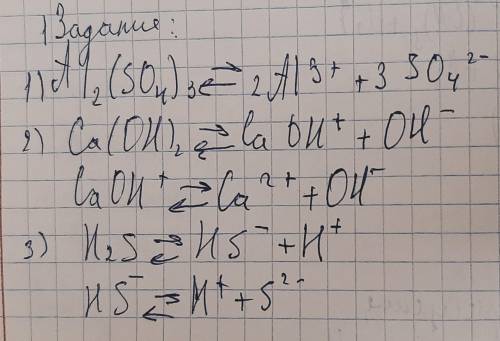 1 Задание:
1) Al₂(SO₄)₃ ⇄ 2Al³⁺ + 3SO₄²⁻
2) Ca(OH)₂ ⇄ CaOH⁺ + OH⁻
CaOH⁺ ⇄ Ca²⁺ + OH⁻
3) H₂S ⇄ HS⁻ + H⁺
HS⁻ ⇄ H⁺ + S²⁻